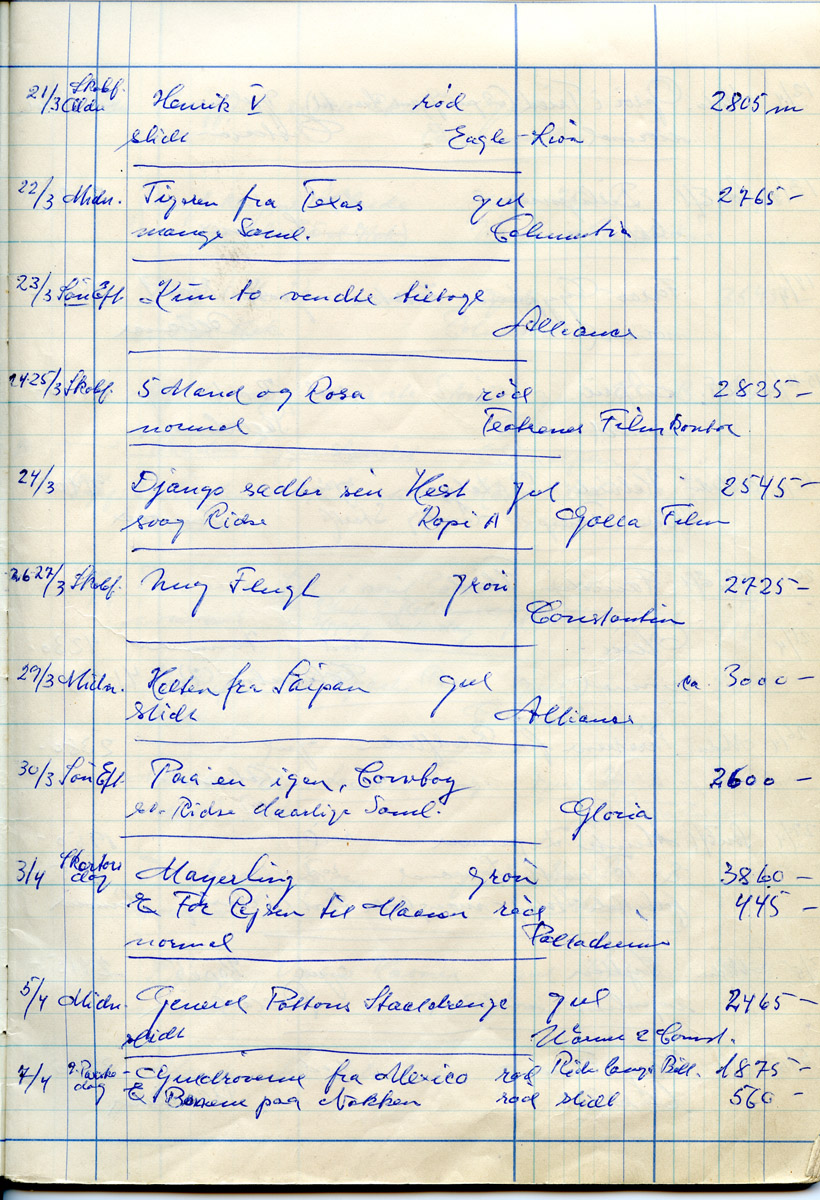 21/3 Skobf. Henrik V röd 2805 m
slidt Eagle-Lion
22/3 Midn. Tigeren fra Texas gul 2765 -
mange Saml. Columbia
23/3 Sön Eft. Kun to vendte tilbage
Alliance
24-25/3 Skobf. 5 Mand og Rosa röd 2825 -
normal Teatrenes Filmkontor
24/3 Django sadler sin Hest gul 2545 -
svag Ridse Kopi A Golla Film
26-27/3 Skobf. Flugt grön 2725 -
Constantin
29/3 Midn. Helten fra Saipan gul ca. 3000 -
slidt Alliance
30/3 Sön Eft. Paa'en igen, Cowboy 2600 -
sv. Ridse daarlige Saml. Gloria
3/4 Skærtorsdag Mayerling grön 3860 -
& För Rejsen til Maanen röd 445 -
normal Palladium
5/4 Midn. General Pattons Staaldrenge gul 2465 -
slidt Warner & Const.
7/4 2. Paaskedag fra Mexico röd Ridse langs Bill. 1875 -
& paa Nakken röd slidt 560 -